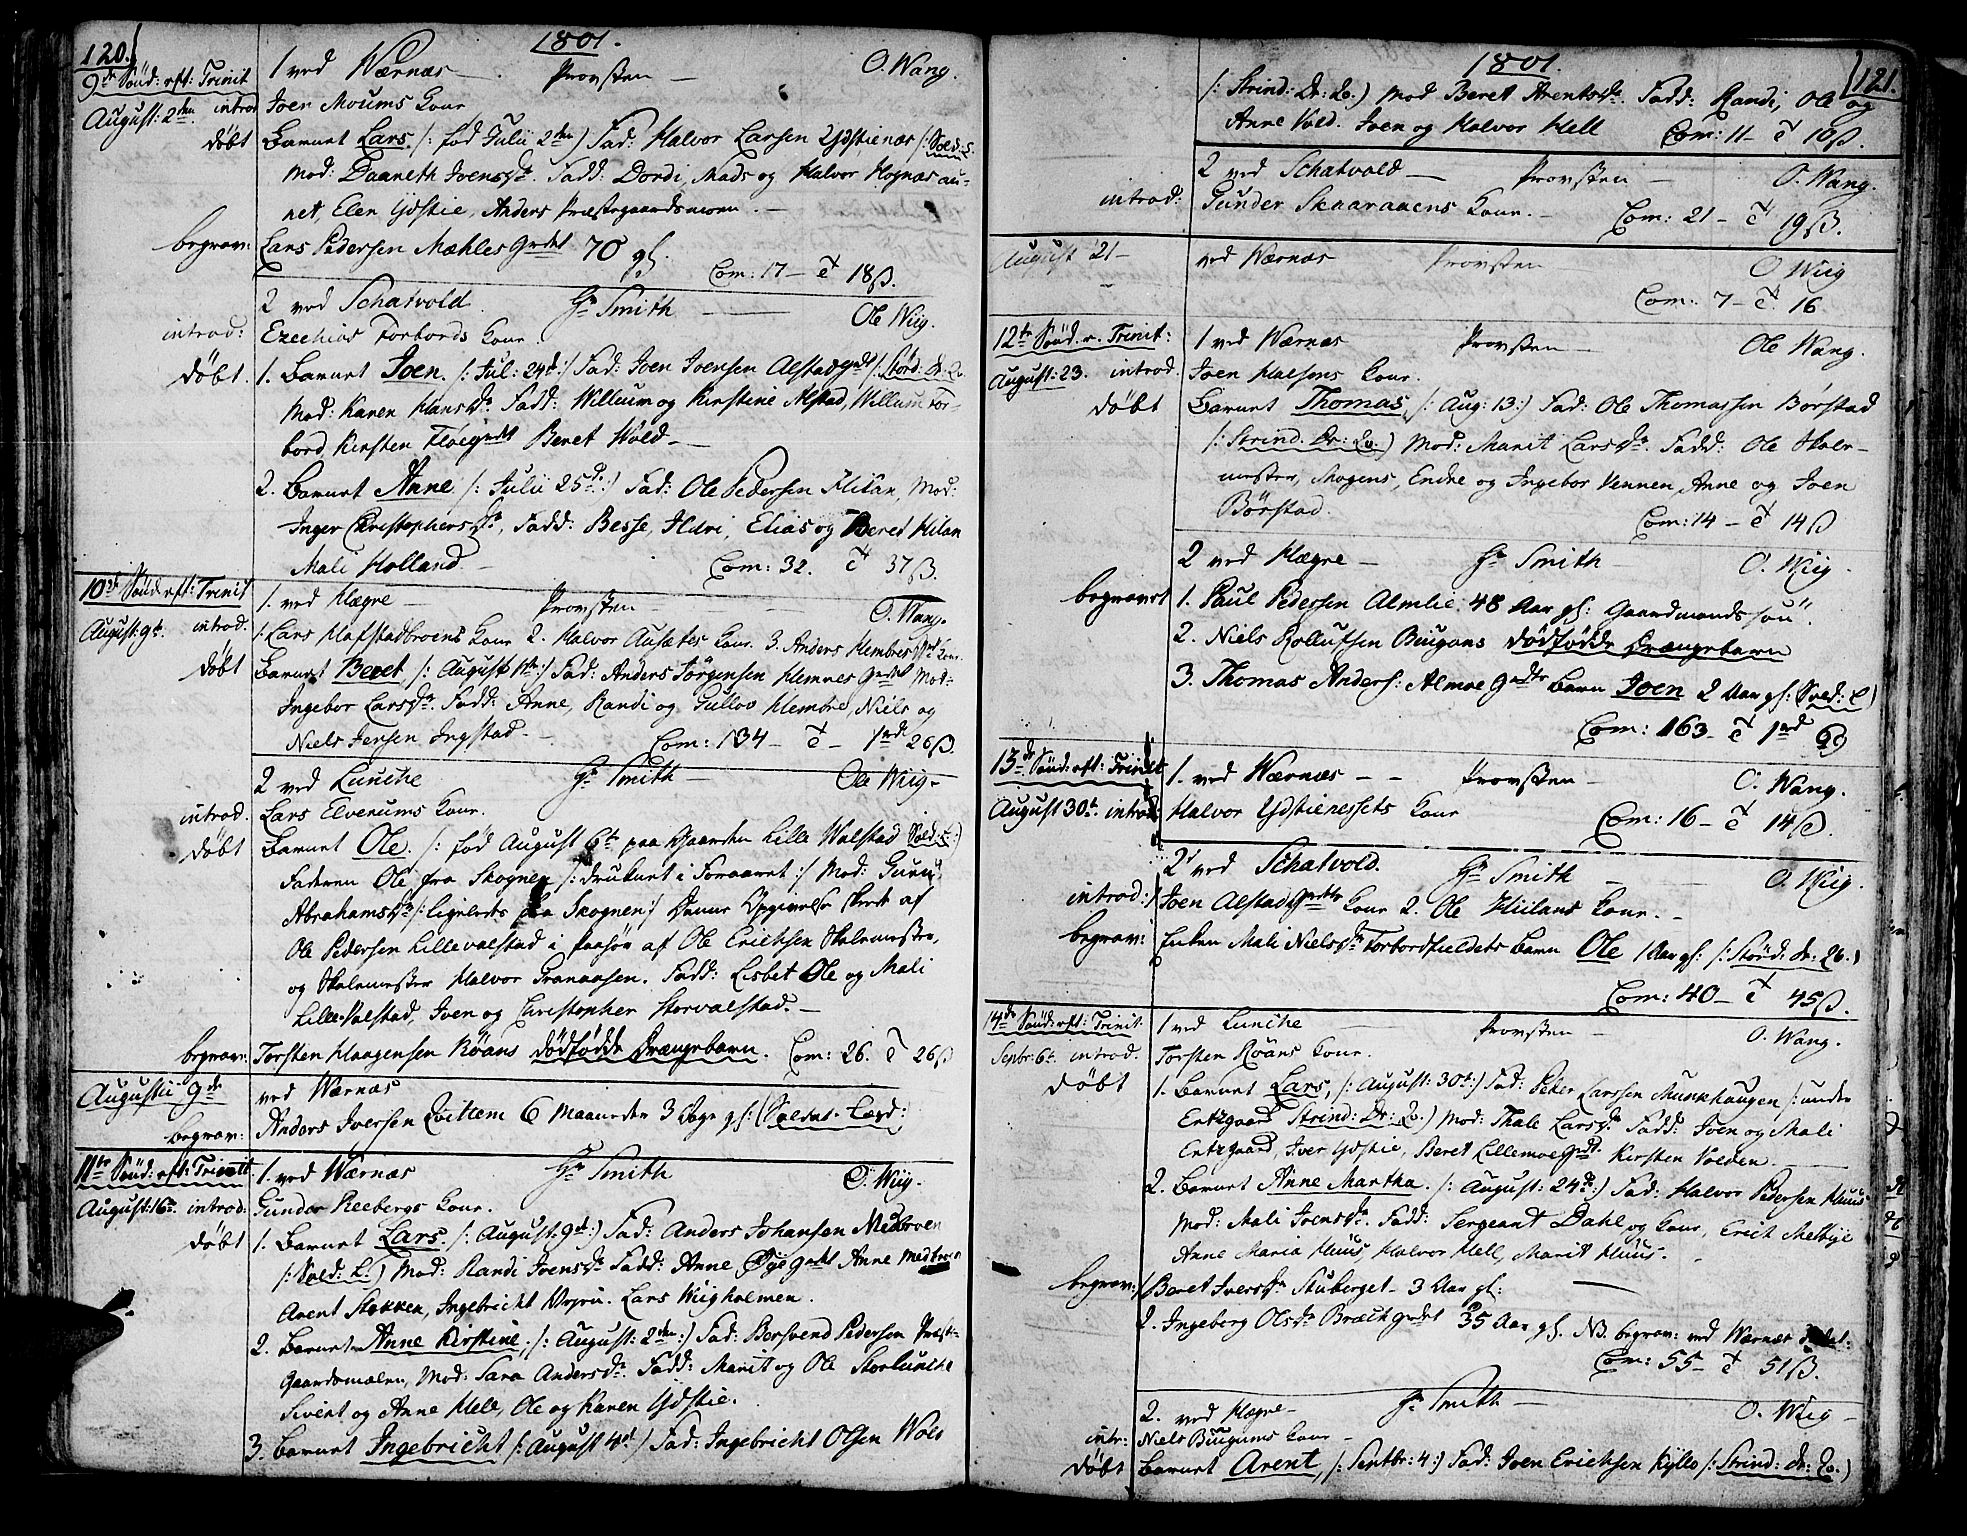 120.
1801.
9de Sønd: eft: Trinit
1 ved Wærnæs — Provsten — O. Wang.
August: 2den introd Joen Moums Kone
døbt Barnet Lars /: fød Julii 2den :) Fad: Halvor Larsen Ydstienæs /: Sold: L:
Mod: Daaneth Joensdr. Fadd: Dordi, Mads og Halvor Hognæsau-
net, Elen Ydstie, Anders Præstegaardsmoen. —
begrav: Lars Pedersen Mæhles Grdet 70 gl.
Com: 17 — t 18ß.
2 ved Schatvold. Hr Smith — Ole Wiig.
introd: Ezechias Forbords Kone.
døbt. 1. Barnet Joen. /: Jul: 24d:/ Fad: Joen Joensen Alstadgrdt /: Størd: Dr: Co.
Mod: Karen Hansdr. Fadd: Willum og Kirstine Alstad, Willum For-
bord, Kirsten Fløigrdt Beret Wold —
2. Barnet Anne. /: Julii 25de:) Fad: Ole Pedersen Hilan, Mod:
Inger Christophersdr, Fadd: Besse, Ildri, Elias og Beret Hilan
Mali Holland — Com: 32. t 37ß.
10de Sønd. eft: Trinit
1. ved Hægre — Provsten — O. Wang.
August: 9d. introd. 1. Lars Hafstadbroens Kone 2. Halvor Ausætes Kone. 3. Anders Hembres Grdt Kone.
døbt Barnet Beret, /: August 1ste:) Fad: Anders Jörgensen Hemnes Grdet Mod:
Ingebor Larsdr. Fadd: Anne, Randi og Gullov Hembre, Niels og
Niels Jensen Ingstad. — Com: 134 — t — 1rd 26ß.
2 ved Lunche Hr Smith — Ole Wiig —
introd. Lars Elverums Kone.
døbt Barnet Ole. /: fød August 6t paa Gaarden Lille Walstad Sold: L:)
Faderen Ole fra Skognen /: druknet i Foraaret :/ Mod: Guru
Abrahamsdr /: ligeledes fra Skognen :/ Denne Opgivelse skede af
Ole Pedersen Lillevalstad i Paahør af Ole Erichsen Skolemester,
og Skolemester Halvor Granaasen. Fadd: Lisbet Ole og Mali
Lille-Valstad, Joen og Christopher Storvalstad. —
begrav: Torsten Haagensen Röans dödfødde Drængebarn. Com: 26. t 26ß
Augustii 9de ved Wærnæs
begrav: Anders Iversen Qvittem 6 Maaneder 3 Dage gl: (
11te Sønd: eft: Trinit. 1. ved Wærnæs Hr Smith O. Wiig.
August: 16. introd: Gunder Reebergs Kone.
døbt 1. Barnet Lars. /: August: 9d:) Fad: Anders Johansen Medbroen
/: Sold: L:) Mod: Randi Joensdr. Fadd: Anne Øyegrdt Anne Medbroen
Arent Stokken, Ingebricht Lars Wiigholmen.
2. Barnet Anne Kirstine, /: August: 2den:) Fad: Bersvend Pedersen Præst-
gaardsmoen, Mod: Sara Andersdr. Fadd: Marit og Ole Storlunche
Sivert og Anne Hell, Ole og Karen Ydstie.
3. Barnet Ingebricht /: August 4d:) Fad: Ingebricht Olsen Wold
1801.
121.
/: Strind: Dr: Co.) Mod Beret Arentsdr. Fadd: Randi, Ole og
Anne Vold. Joen og Halvor Hell Com: 11 — t 10ß.
2 ved Schatvold — Provsten — O. Wang.
introd: Gunder Skaaraaens Kone. — Com: 21 — t 19ß.
August 21 — ved Wærnæs Provsten O Wiig
Com: 7 — t 16
12te Sønd. e. Trinit: 1 ved Wærnæs Provsten — Ole Wang.
August: 23. introd. Joen Halsens Kone.
døbt Barnet Thomas, /: Aug: 13:) Fad: Ole Thomassen Børstad
/: Strind. Dr: Co.) Mod: Marit Larsdr. Fadd: Ole Skole-
mester, Mogens, Endre og Ingebor Vennen, Anne og Joen
Börstad. Com: 14 — t 14ß
2 ved Hægre — Hr Smith — O. Wiig.
begravet 1. Paul Pedersen Almlie. 48 Aar gl: Gaardmands søn.
2. Niels Rolluffsen Biugans dödfødde Drængebarn
3. Thomas Anders: Almoe Grdts Barn Joen 2 Aar gl: Sold: L)
Com: 163 — t 1rd 6ß
13de Sønd: eft: Trinit 1. ved Wærnæs — — Provsten — O. Wang.
August 30t. introd: Halvor Ydstienessets Kone Com: 16 — t 14ß.
2 ved Schatvold. Hr Smith — O. Wiig.
introd: 1 Joen Alstad Grdts Kone 2. Ole Hiilans Kone. —
begrav: Enken Mali Nielsdr Forbordfieldets Barn Ole 1 Aar gl: /: Størd: Dr: Co.)
Com: 40 — t 45ß
14de Sønd: eft: Trinit. 1 ved Lunche — Provsten — O. Wang.
Septbr: 6t. introd. Torsten Röans Kone.
døbt 1. Barnet Lars, /: August: 30t:) Fad: Peter Larssen Munkhaugen /: under
Entzgaard Strind: Dr: Co.) Mod: Thale Larsdr. Fadd: Joen og Mali
Entzgaard, Iver Ydstie, Beret Lillemoegrdt. Kirsten Volden. —
2. Barnet Anne Martha. /: August: 24de:) Fad: Halvor Pedersen Huus
Mod: Mali Joensdr. Fadd: Sergeant Dahl og Kone, Erich Melbye
Anne Maria Huus, Halvor Hell, Marit Huus.
begrav: 1 Beret Iversdr Stuberget — 3 Aar gl: —
2. Ingeborg Olsdr Bræch grdet 35 Aar gl. NB. begrav: ved Wærnæs
Com: 55 — t 51ß.
2. ved Hægre — Hr Smith — O. Wiig —
intr: Niels Biugums Kone —
døbt Barnet Arent, /: Septbr: 4:) Fad: Joen Erichsen Kyllo /: Strind: Dr: Co.)